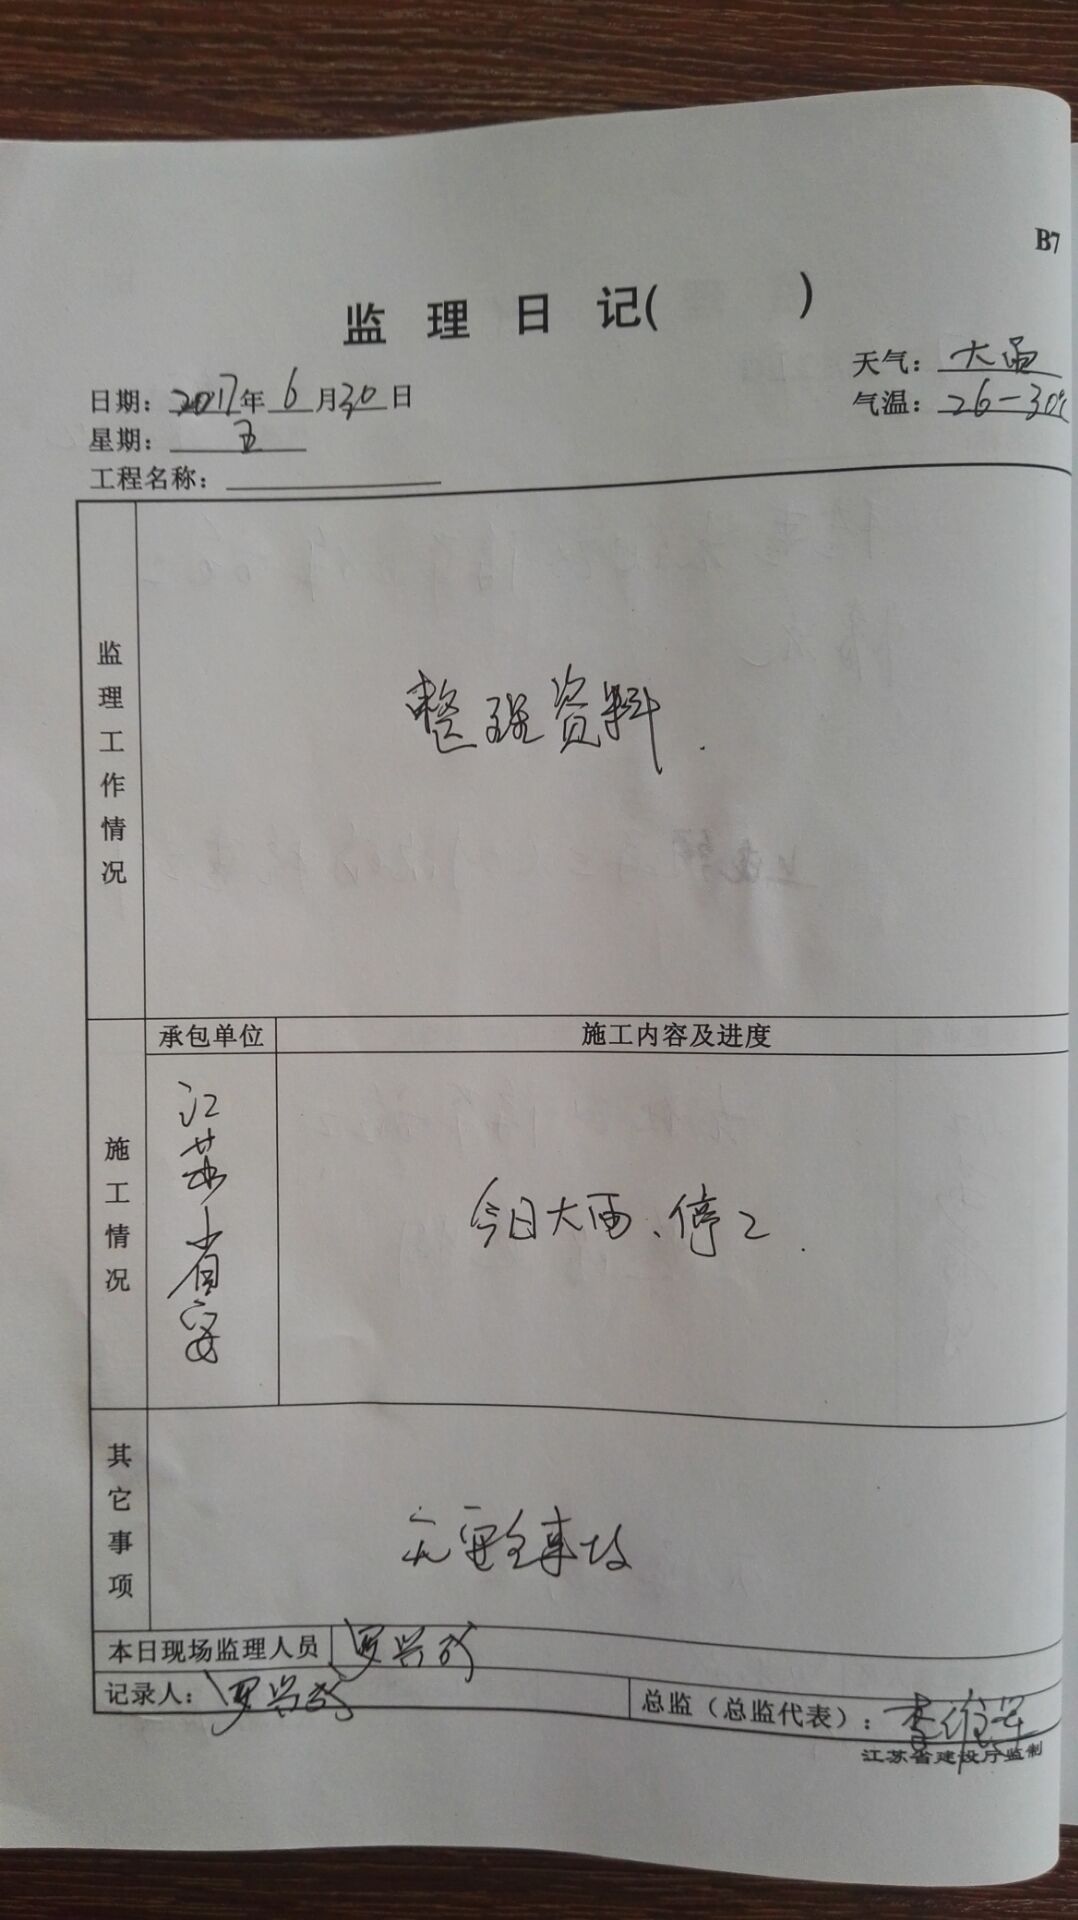 B7
监理日记( )
日期：2017年6月30日
天气：大雨
星期：五
气温：26-30℃
工程名称：
监理工作情况
整理资料.
施工情况
承包单位
施工内容及进度
江苏省安
今日大雨、停工.
其它事项
无安全事故
本日现场监理人员
记录人：
总监（总监代表）：李维军
江苏省建设厅监制